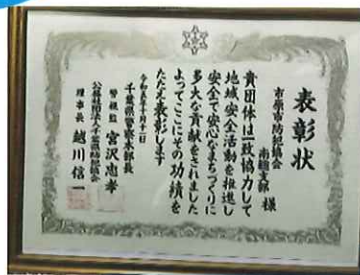 表彰状
市原市防犯協会
南総支部 様
貴団体は一致協力して
地域安全活動を推進し
安全で安心なまちづくりに
多大な貢献をされました
よってここにその功績を
たたえ表彰します
令和五年十月十一日
千葉県警察本部長
警視監 宮沢忠孝
公益社団法人千葉県防犯協会
理事長 越川信一